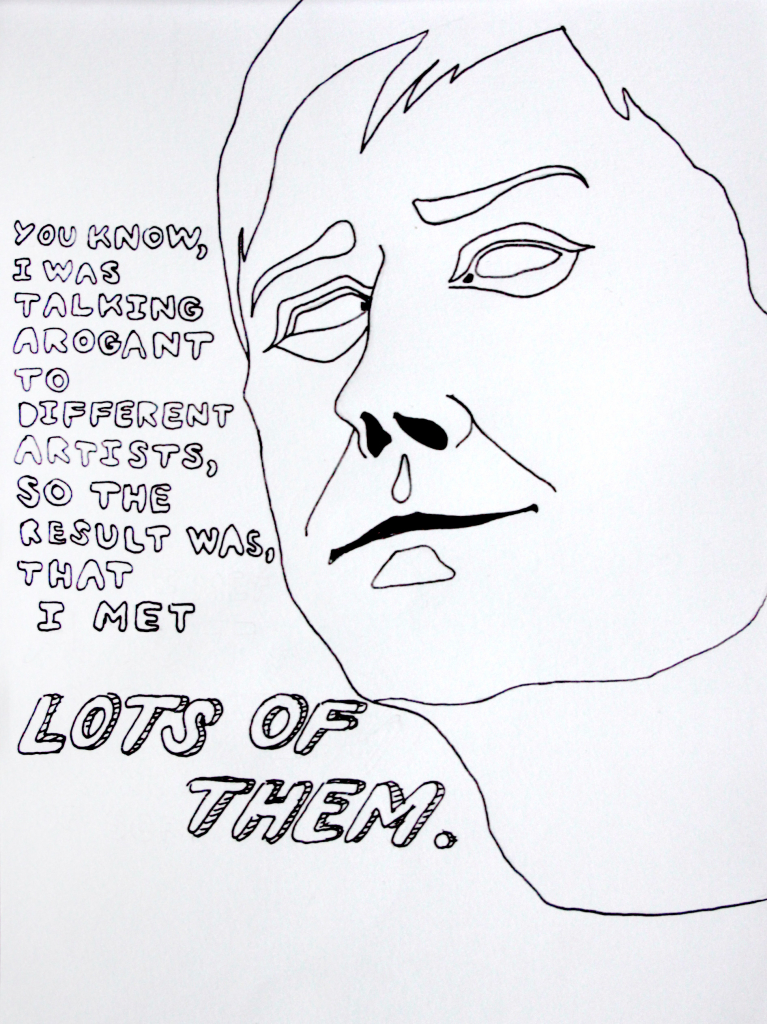 YOU KNOW,
I WAS
TALKING
AROGANT
TO
DIFFERENT
ARTISTS,
SO THE
RESULT WAS,
THAT
I MET
LOTS OF
THEM.